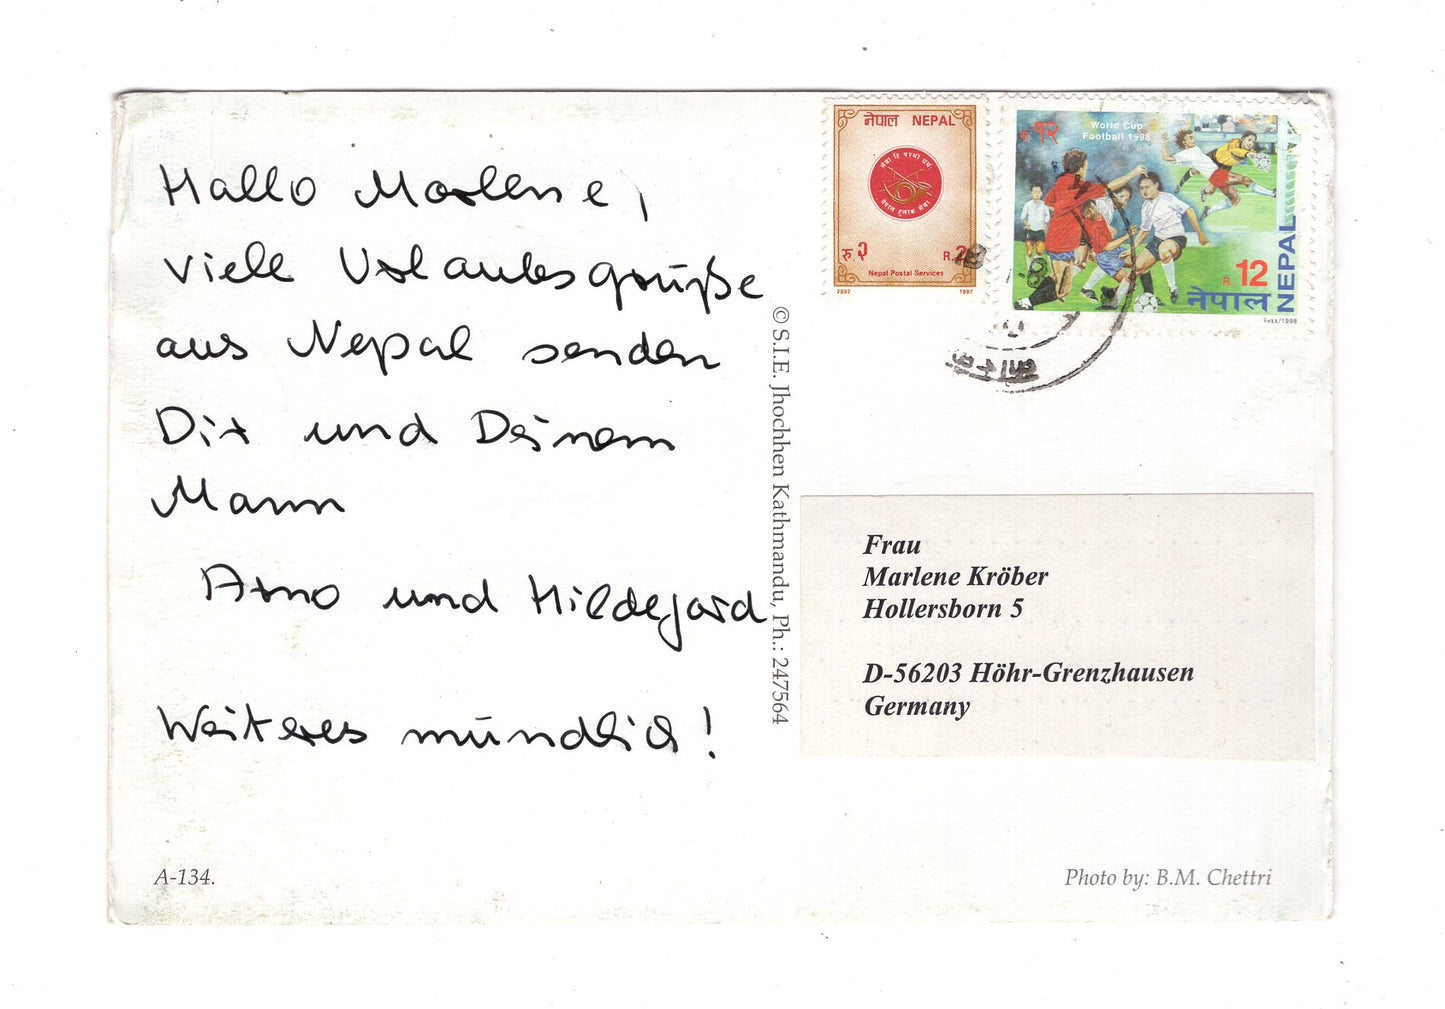 Hallo Marlene,
viele Urlaubsgrüße
aus Nepal senden
Dir und Deinem
Mann
Arno und Hildegard
Weiteres mündlich!
A-134.
© S.I.E. Jhochhen Kathmandu, Ph.: 247564
नेपाल NEPAL
सेवा हि परमो धर्म
नेपाल हुलाक सेवा
रु २
R. 2
Nepal Postal Services
1997
रु १२
World Cup
Football 1998
R. 12
नेपाल
NEPAL
Frau
Marlene Kröber
Hollersborn 5
D-56203 Höhr-Grenzhausen
Germany
Photo by: B.M. Chettri